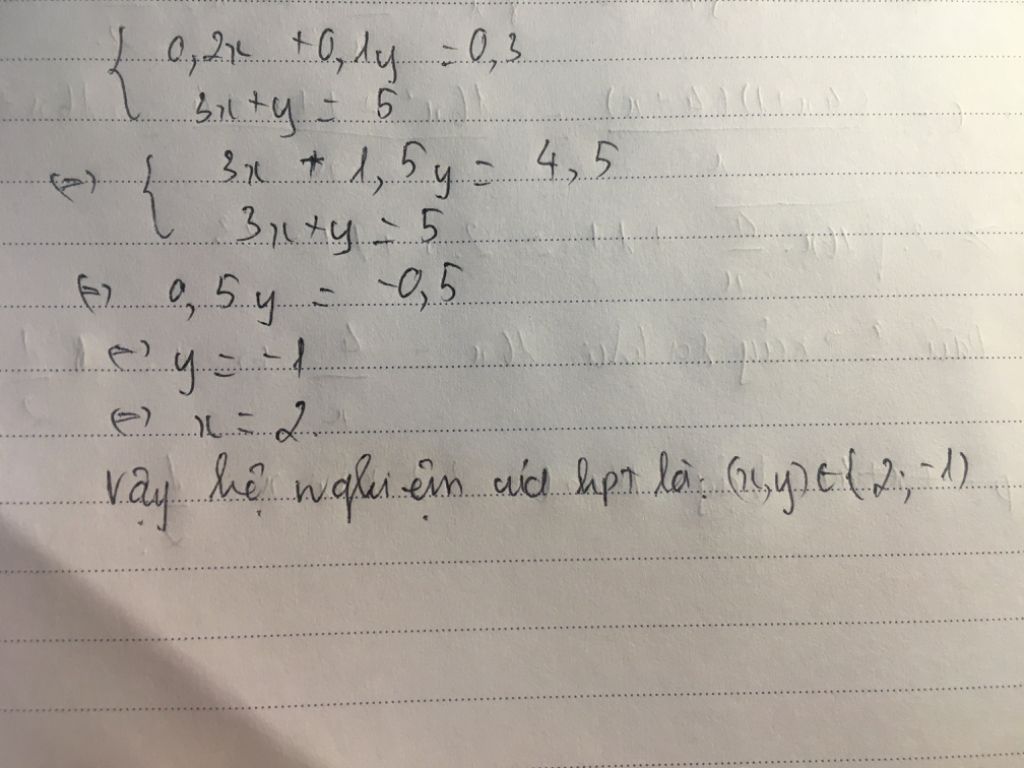 { 0,2x + 0,1y = 0,3
3x + y = 5
(=) { 3x + 1,5y = 4,5
3x + y = 5
(=) 0,5y = -0,5
(=) y = -1
(=) x = 2.
vậy hệ nghiệm của hpt là: (x,y) ∈ { 2; -1)